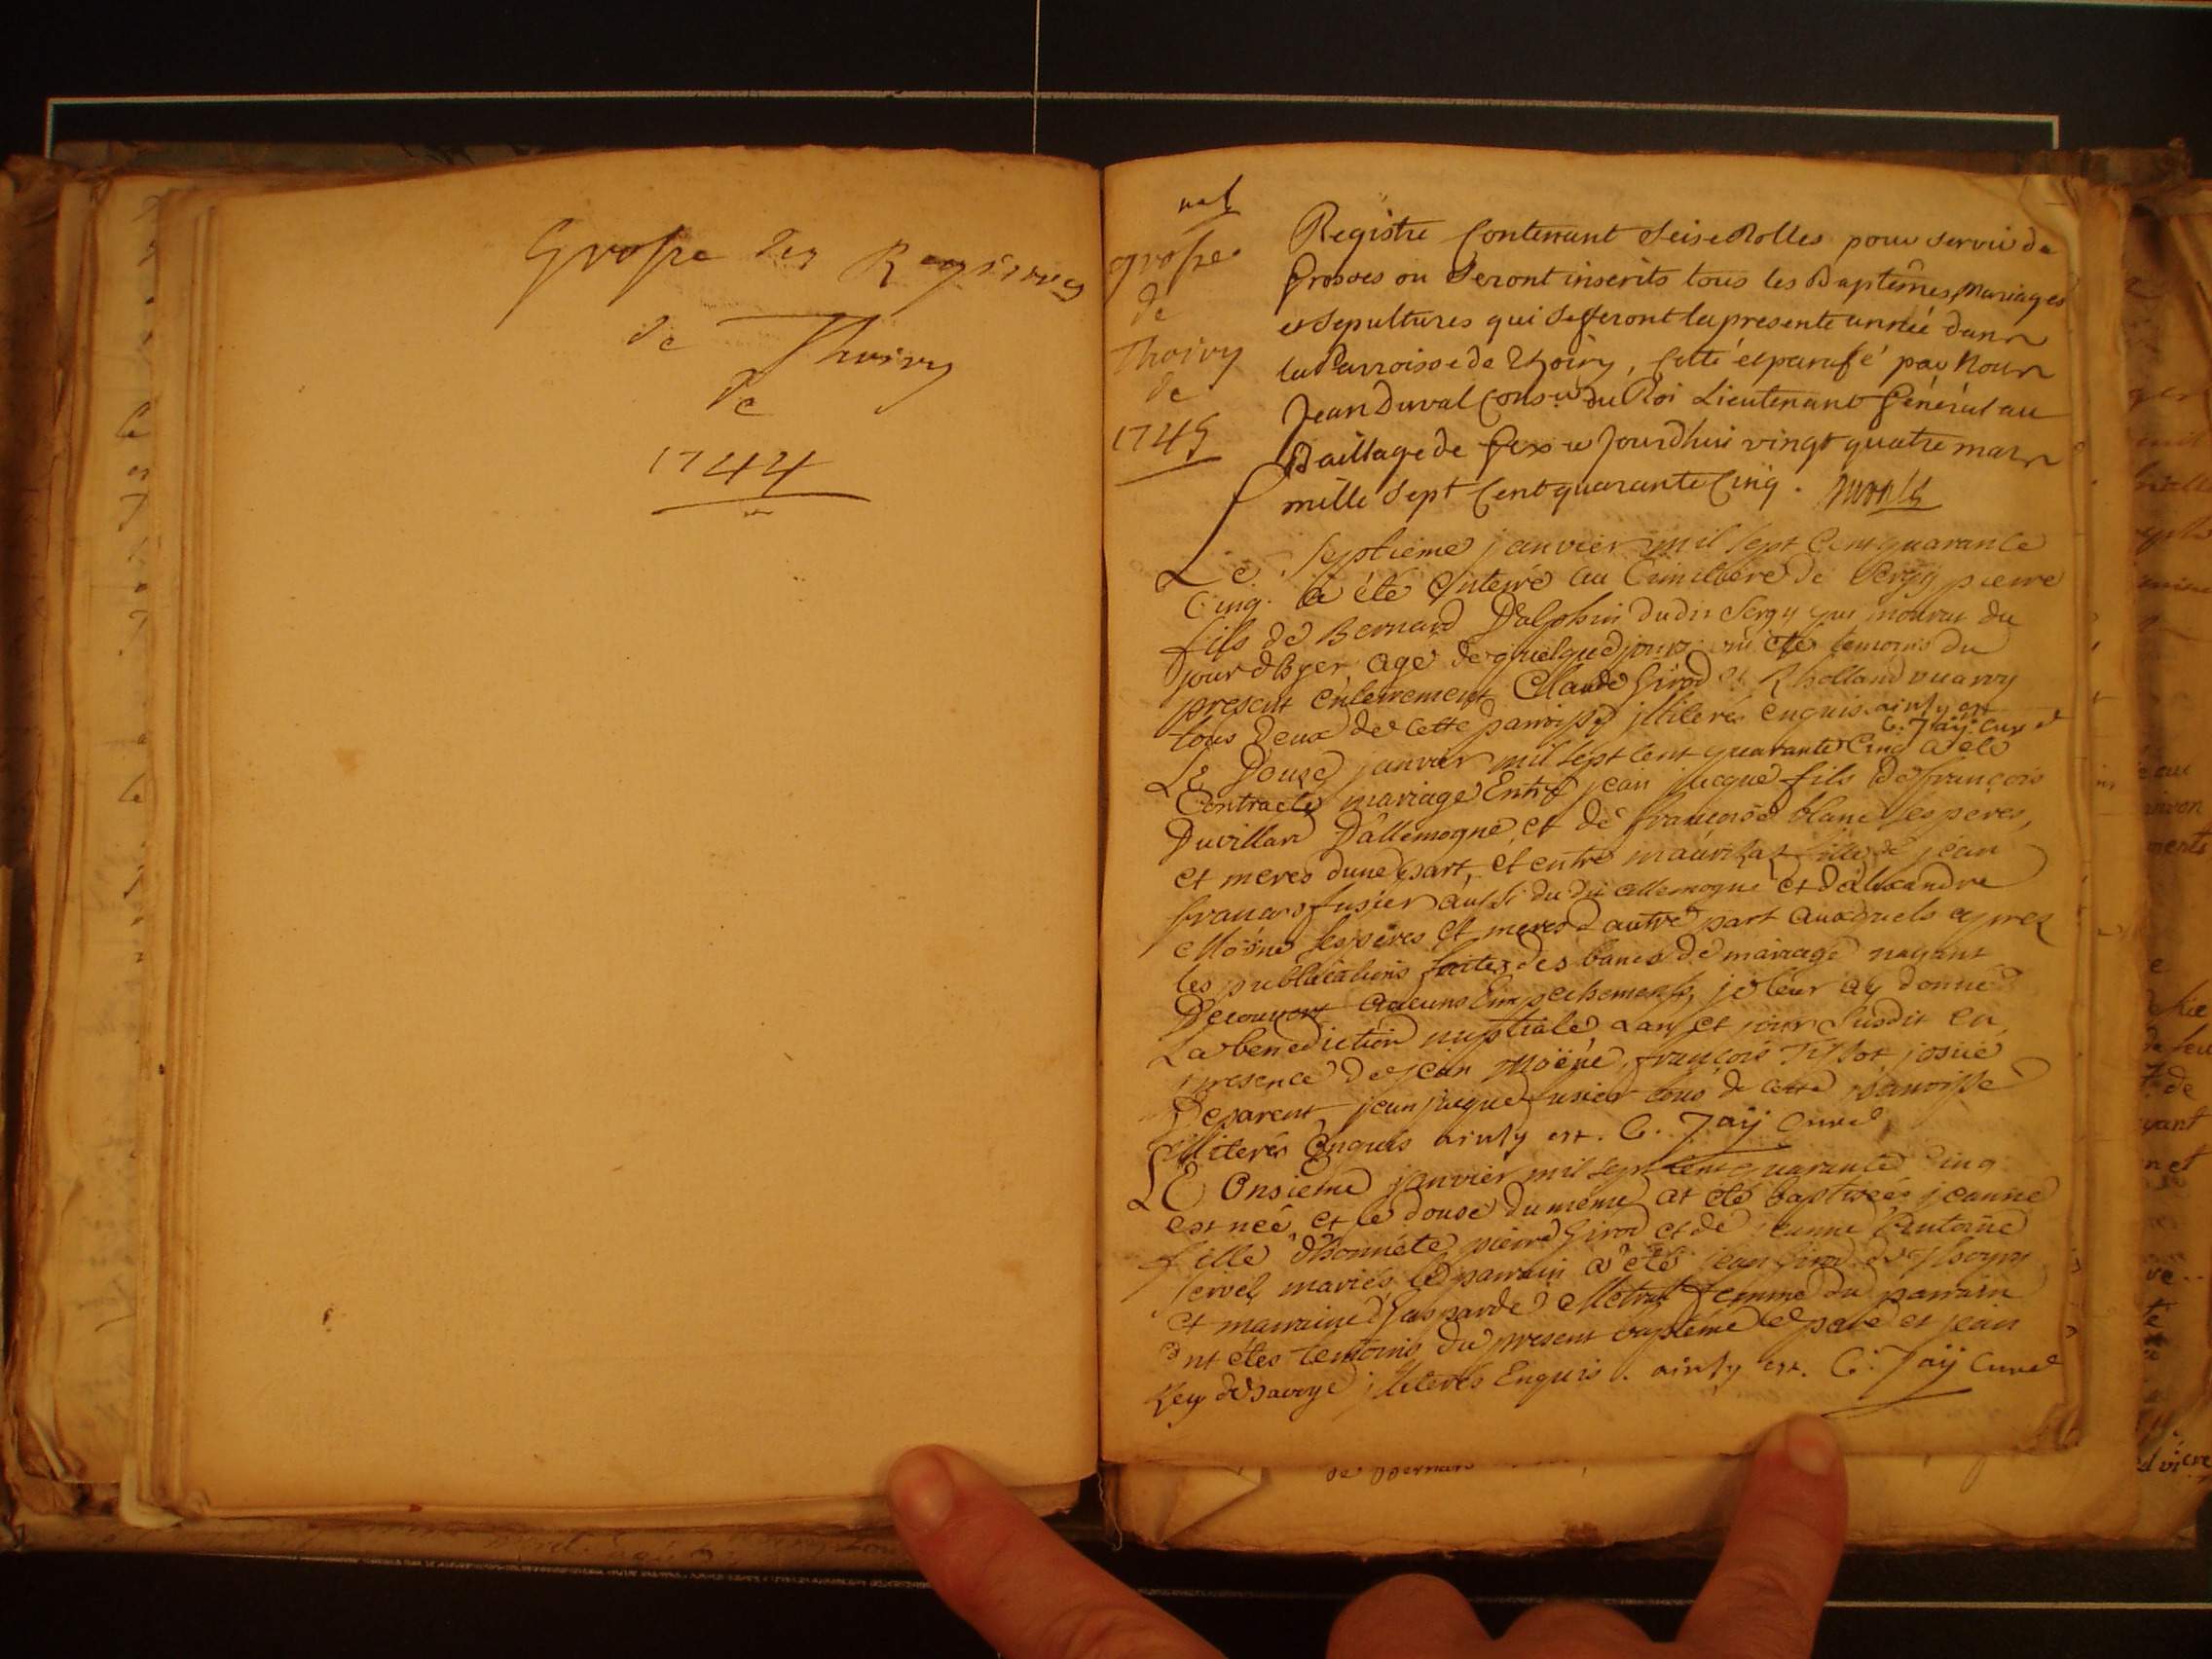 Grosse des Registres
de Thoiry
de
1744
grosse
de
Thoiry
de
1745
Registre Contenant Seise Rolles pour servir de
Grosses ou Seront inscrits tous les Baptêmes, Mariages
et Sepultures qui se feront la presente année dans
la Parroisse de Thoiry, Cotté et parafé par Nous
Jean Duval Consr. du Roi Lieutenant Général au
Baillage de Gex ce Jourdhui vingt quatre mars
mille Sept Cent quarante Cinq.
Le Septieme janvier mil sept cent quarante
Cinq a été Enterré au Cimitière de Sergy pierre
fils de Bernard Dalphin dudit Sergy qui mourut du
jour d'hyer agé de quelque jours ont été temoins du
present enterrement Claude Girod et Rholland vuarry
tous deux de cette parroisse illiterés enquis ainsy est
C. Jaÿ Curé
Le Douse janvier mil sept cent quarante Cinq a été
Contracté mariage Entre jean jacque fils de françois
Duvillard D'allemogne et de francoise blanc ses peres,
et meres dune part, et entre fille de jean
francois fusier aussi du dit allemogne et d'alexandre
Moëne ses pères et meres d'autre part auxquels apres
les publications faites des bancs de mariage nayant
Decouvert aucuns Empechements, je leur ay donné
La benediction nuptiale, L'an et jour Susdit en
presence de jean Moëne, françois Tissot josüé
Deparent, jean jacque fusier tous de cette parroisse
illiterés Enquis ainsy est. C. Jaÿ Curé
LE Onsieme janvier mil sept cent quarante cinq
est née, et le douse du meme at été baptisée jeanne
fille d'honnête pierre Girod et de jeanne Antoine
servel mariés, le parrain a été jean Girod de Thoiry
et marraine Gasparde Métral femme du parrain
ont étés temoins du present baptême le pere et jean
Rey de Savoye illiterés Enquis. ainsy est. C. Jaÿ Curé
de Bernard